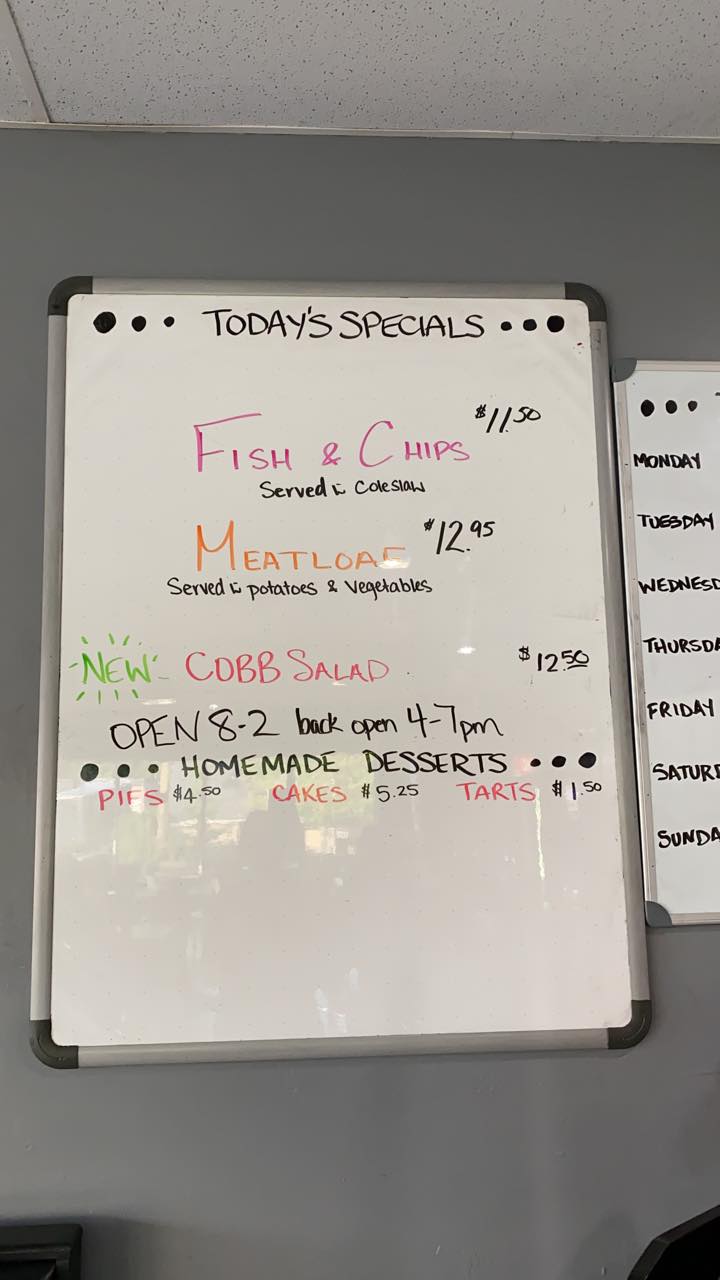 ••• TODAY'S SPECIALS •••
FISH & CHIPS $11.50
Served w Coleslaw
MEATLOAF $12.95
Served w potatoes & Vegetables
NEW COBB SALAD $12.50
OPEN 8-2 back open 4-7pm
••• HOMEMADE DESSERTS •••
PIES $4.50 CAKES $5.25 TARTS $1.50
•••
MONDAY
TUESDAY
WEDNESD
THURSDA
FRIDAY
SATUR
SUNDA